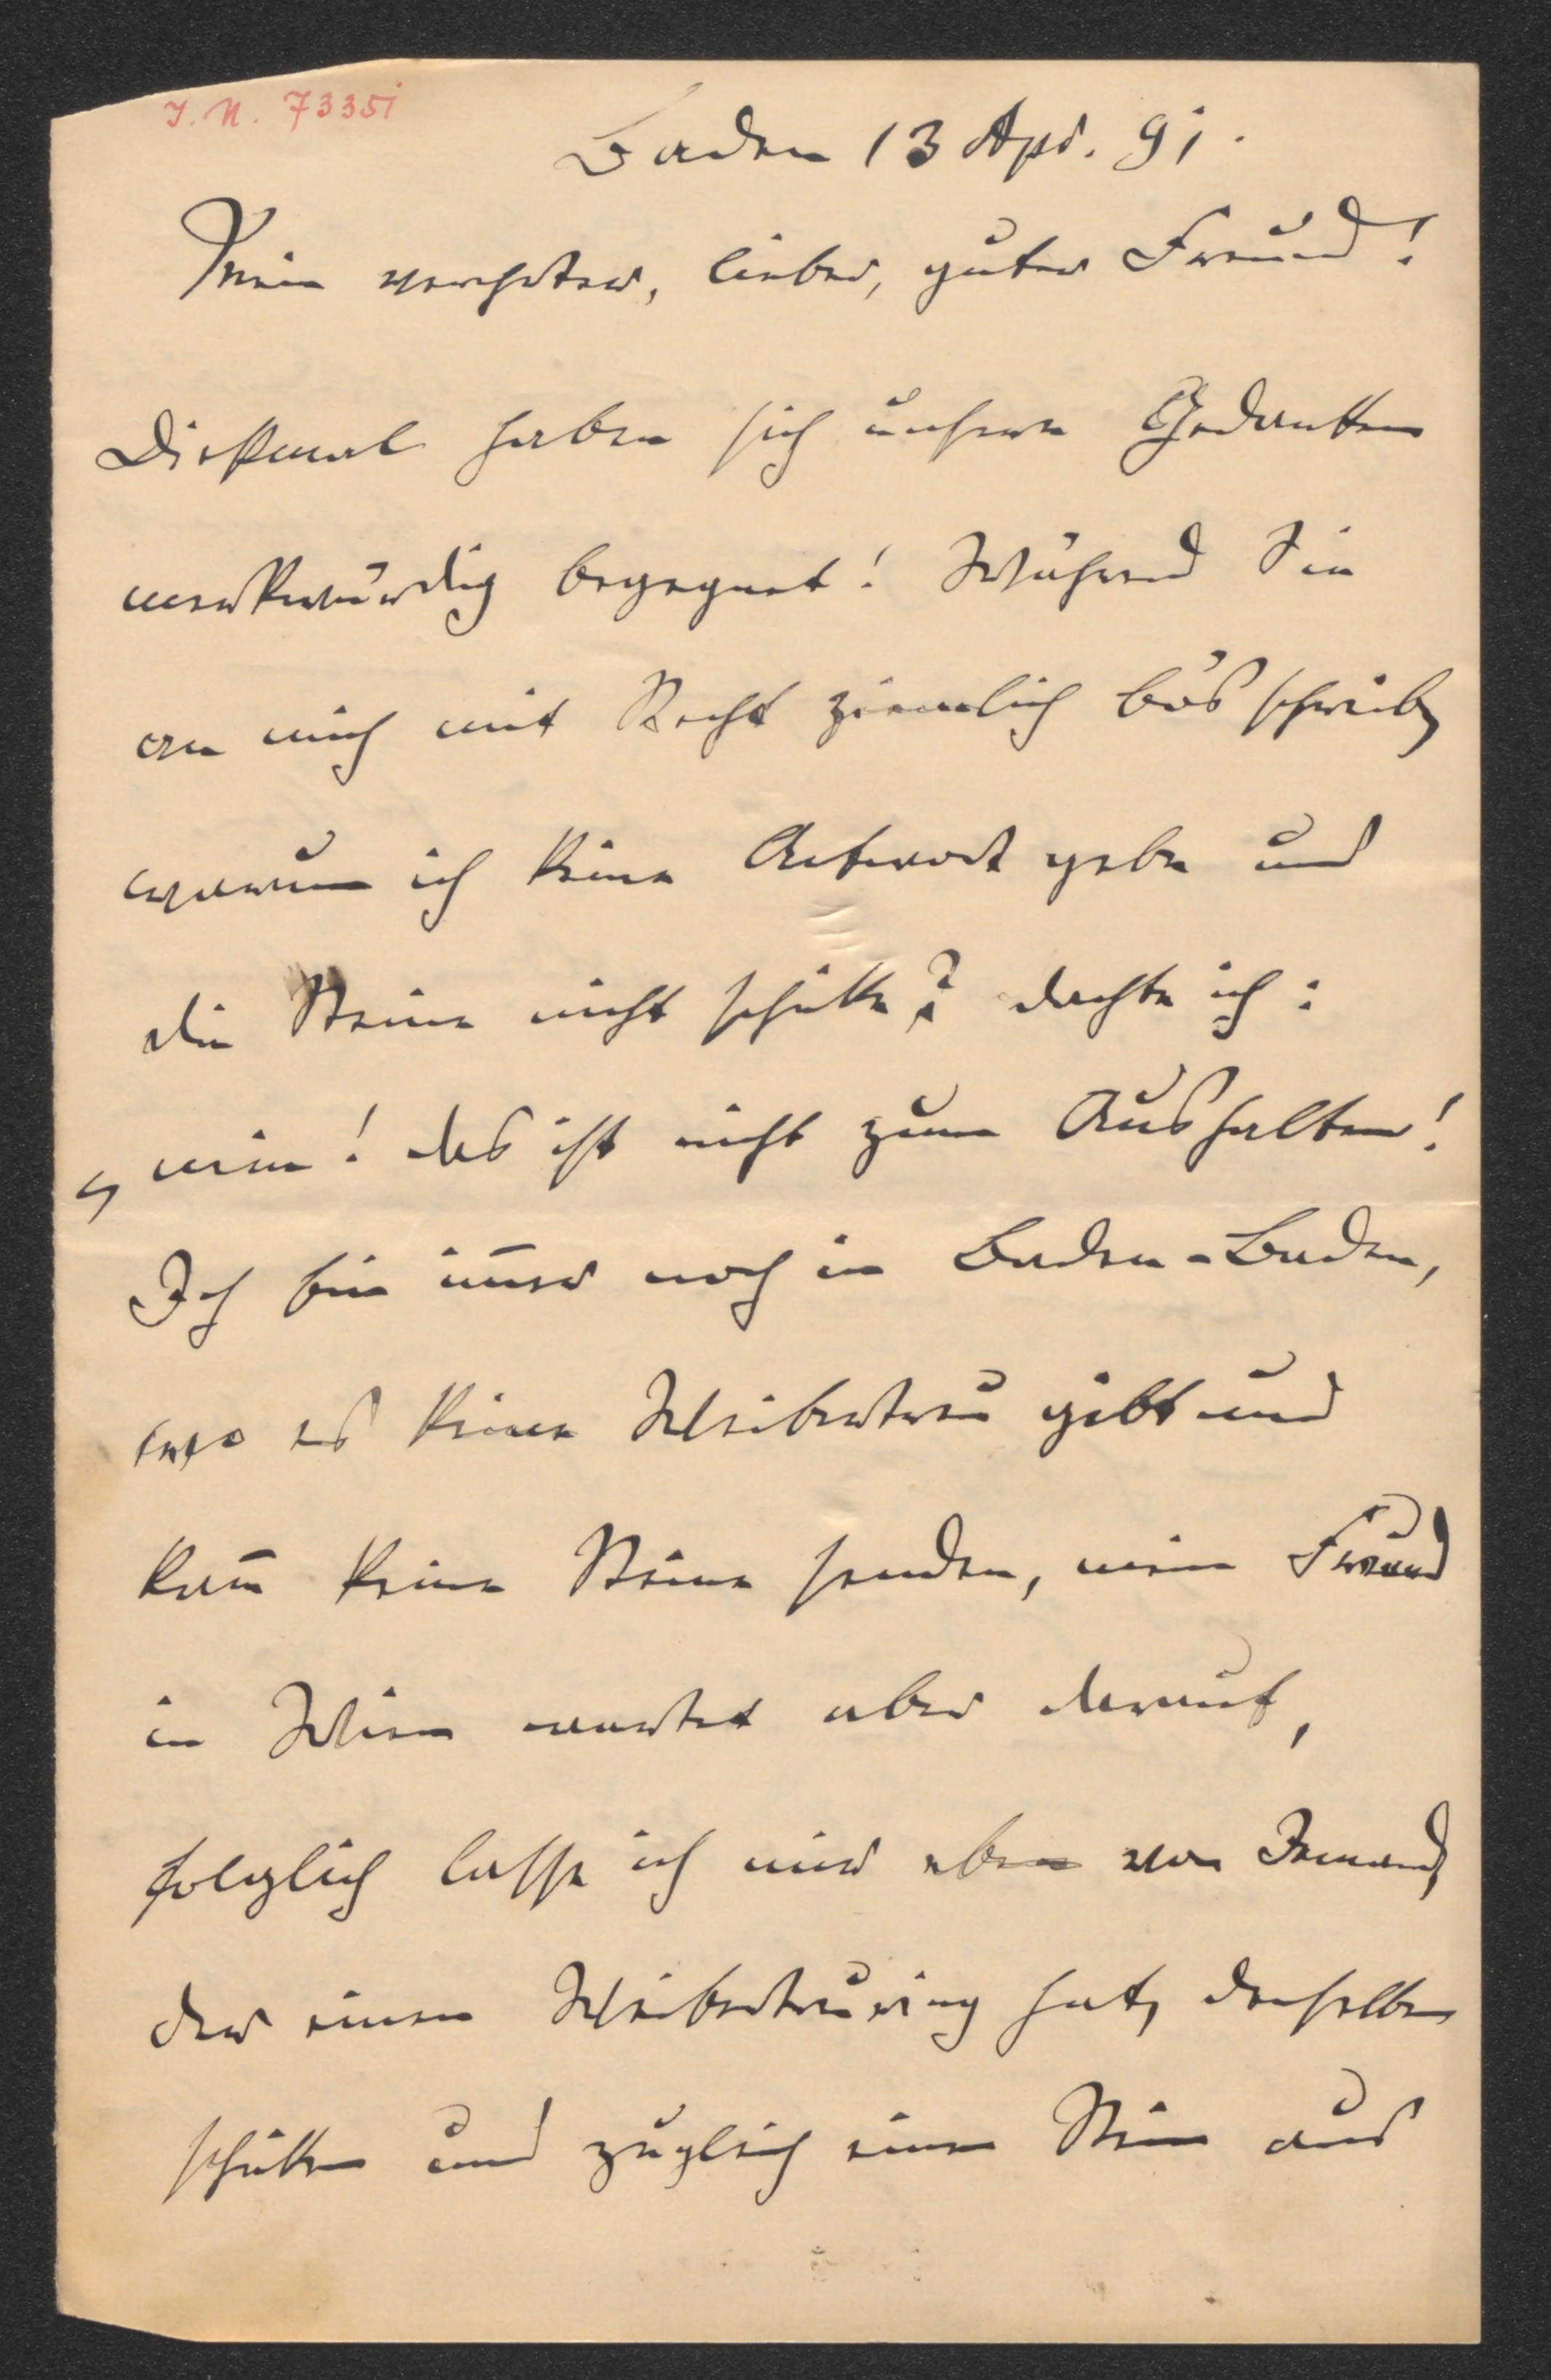 I. N. 73351
Baden 13 Apr. 91.
Mein verehrter, lieber, guter Freund!
Dießmal haben sich unsere Gedanken
merkwürdig begegnet! Während Sie
an mich mit Recht ziemlich bös schreiben
warum ich keine Antwort gebe und
die Steine nicht schicke? dachte ich:
„nein! das ist nicht zum Aushalten!
Ich bin im̄er noch in Baden-Baden,
wo es keine Weibertreu gibt und
kan̄ keine Steine senden, mein Freund
in Wien wartet aber darauf,
folglich lasse ich mir eben von Jemand,
der einen Weibertreuring hat, denselben
schicken und zugleich einen Stein aus